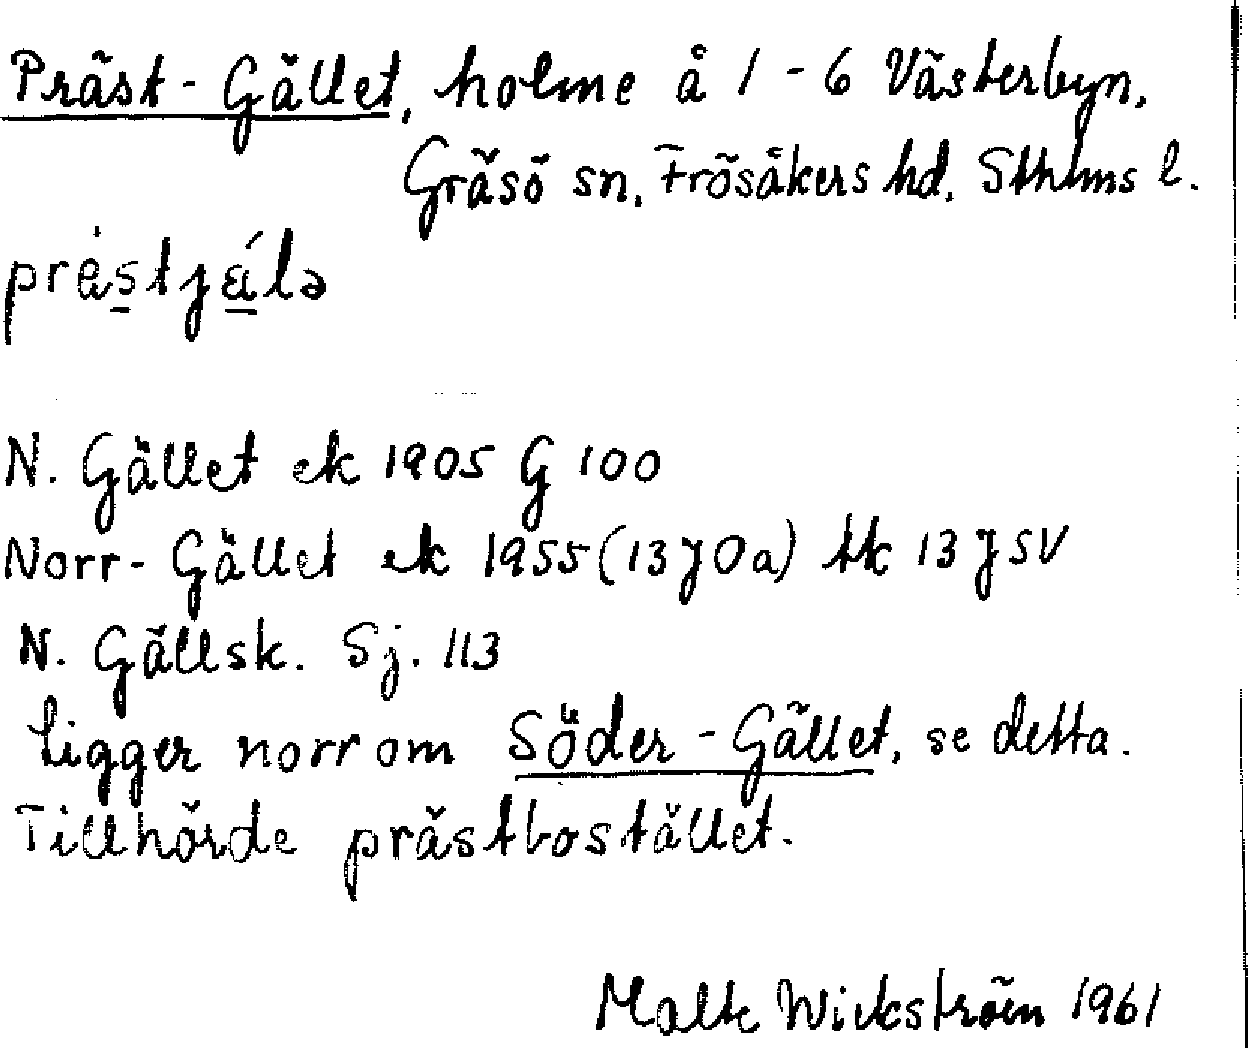 Präst-Gället, holme å 1-6 Västerbyn,
Gräsö sn, Frösåkers hd, Sthlms l.
N. Gället ek 1905 G 100
Norr-Gället ek 1955 (13 J 0a) tk 13 J SV
N. Gällsk. Sj. 113
Ligger norr om Söder-Gället, se detta.
Tillhörde prästbostället.
Malte Wickström 1961